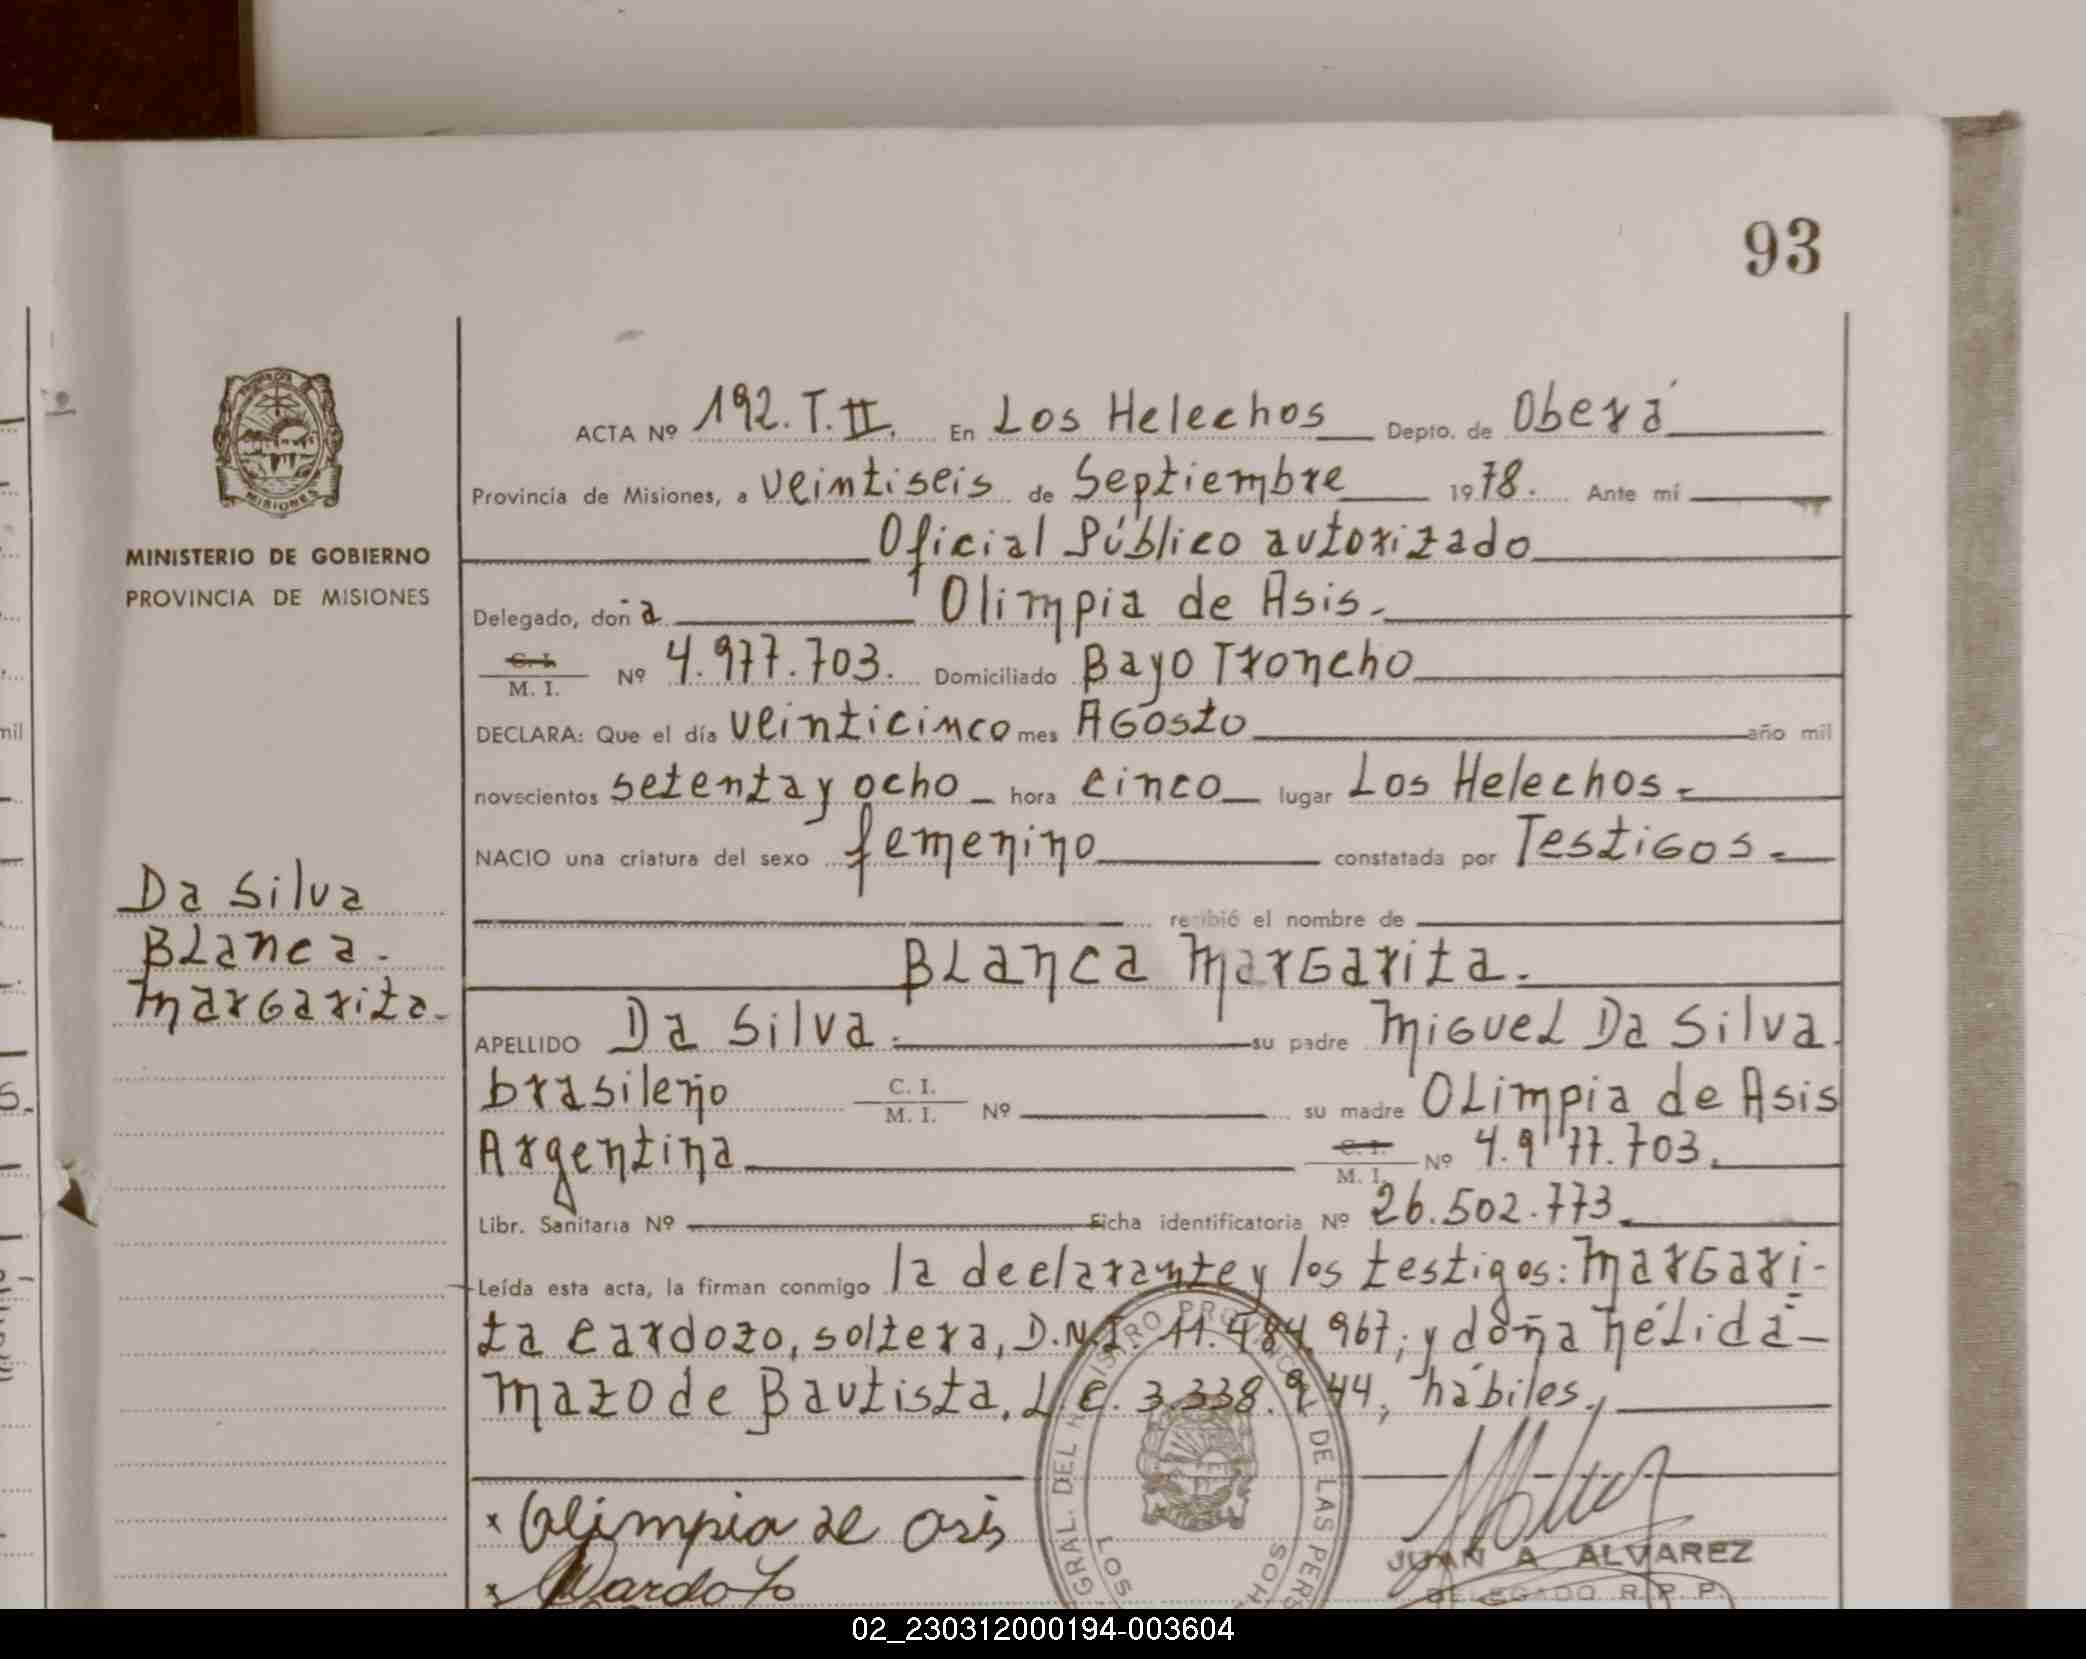 93
MISIONES
MINISTERIO DE GOBIERNO
PROVINCIA DE MISIONES
Da Silva
Blanca.
Margarita.
ACTA Nº 192.T.II. En Los Helechos Depto. de Oberá
Provincia de Misiones, a veintiseis de Septiembre 1978. Ante mí
Oficial Público autorizado
Delegado, doña Olimpia de Asis.
C. I.
M. I. Nº 4.977.703. Domiciliado Bayo Troncho
DECLARA: Que el día veinticinco mes Agosto año mil
novecientos setenta y ocho hora cinco lugar Los Helechos.
NACIO una criatura del sexo femenino constatada por Testigos.
recibió el nombre de
Blanca Margarita.
APELLIDO Da Silva. su padre Miguel Da Silva.
brasileño C. I. M. I. Nº su madre Olimpia de Asis
Argentina C. I. M. I. Nº 4.977.703.
Libr. Sanitaria Nº Ficha identificatoria Nº 26.502.773.
Leída esta acta, la firman conmigo la declarante y los testigos: Margari-
ta Cardozo, soltera, D.N.I. 11.484.967; y doña Nélida
Mazo de Bautista, L.C. 3.338.944, hábiles.
x Olimpia de Asis
x Cardozo
GRAL. DEL REGISTRO PROVINCIAL DE LAS PERS
LOS HE
JUAN A ALVAREZ
DELEGADO R.P.P.
02_230312000194-003604